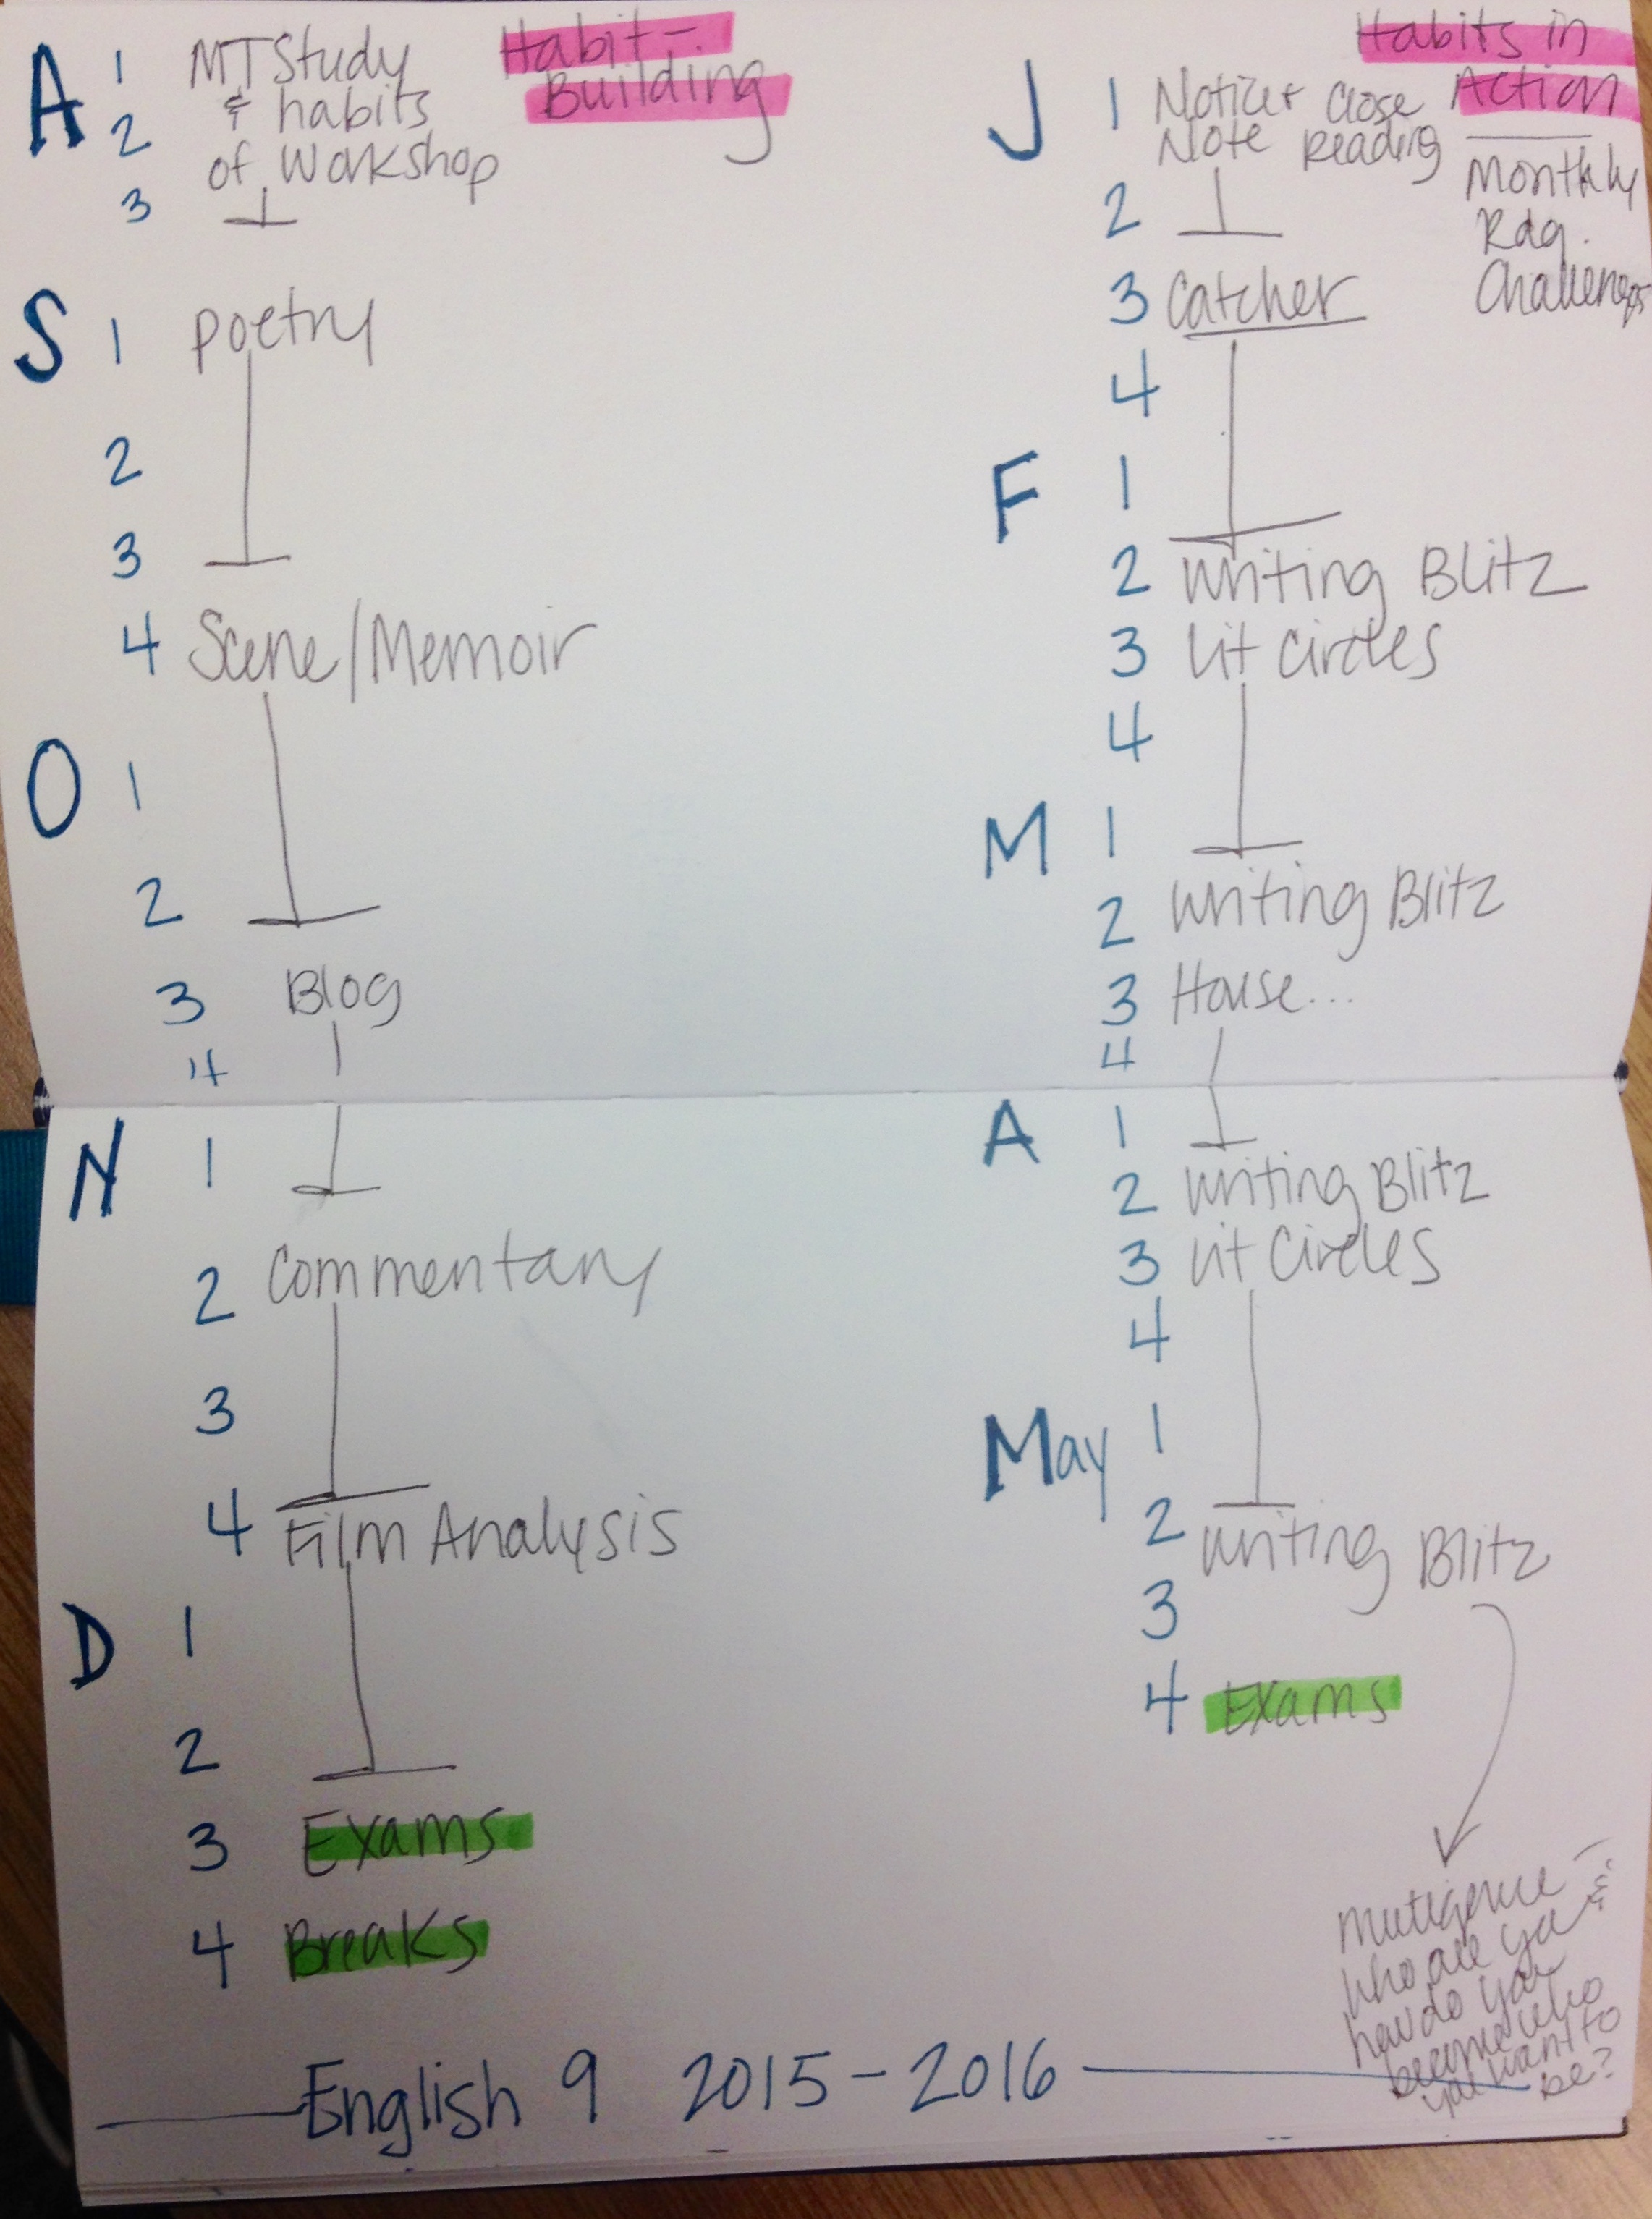 Habit-
Building
A 1 MT Study
2 & habits
of Workshop
3
S 1 Poetry
2
3
4 Scene/Memoir
O 1
2
3 Blog
4
N 1
2 Commentary
3
4 Film Analysis
D 1
2
3 Exams
4 Breaks
Habits in
Action
Monthly
Rdg.
Challenges
J 1 Notice + Close
Note Reading
2
3 Catcher
4
F 1
2 Writing Blitz
3 Lit Circles
4
M 1
2 Writing Blitz
3 House...
4
A 1
2 Writing Blitz
3 Lit Circles
4
May 1
2 Writing Blitz
3
4 Exams
Multigenre -
who are you &
how do you
become who
you want to
be?
English 9 2015-2016